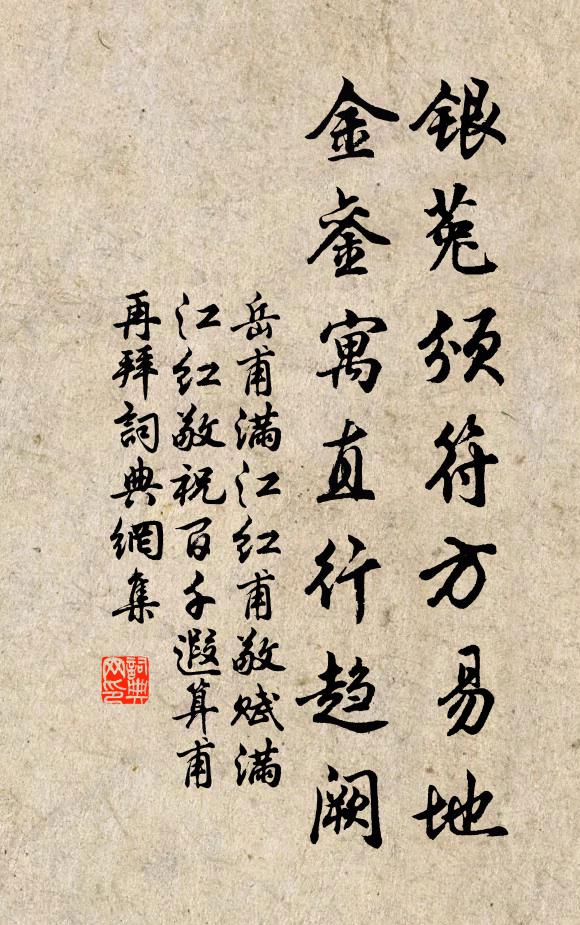 银菟颁符方易地
金銮寓直行趋阙
岳甫满江红甫敬赋满
江红敬祝百千遐算甫
再拜詞典網集
詞典
网印